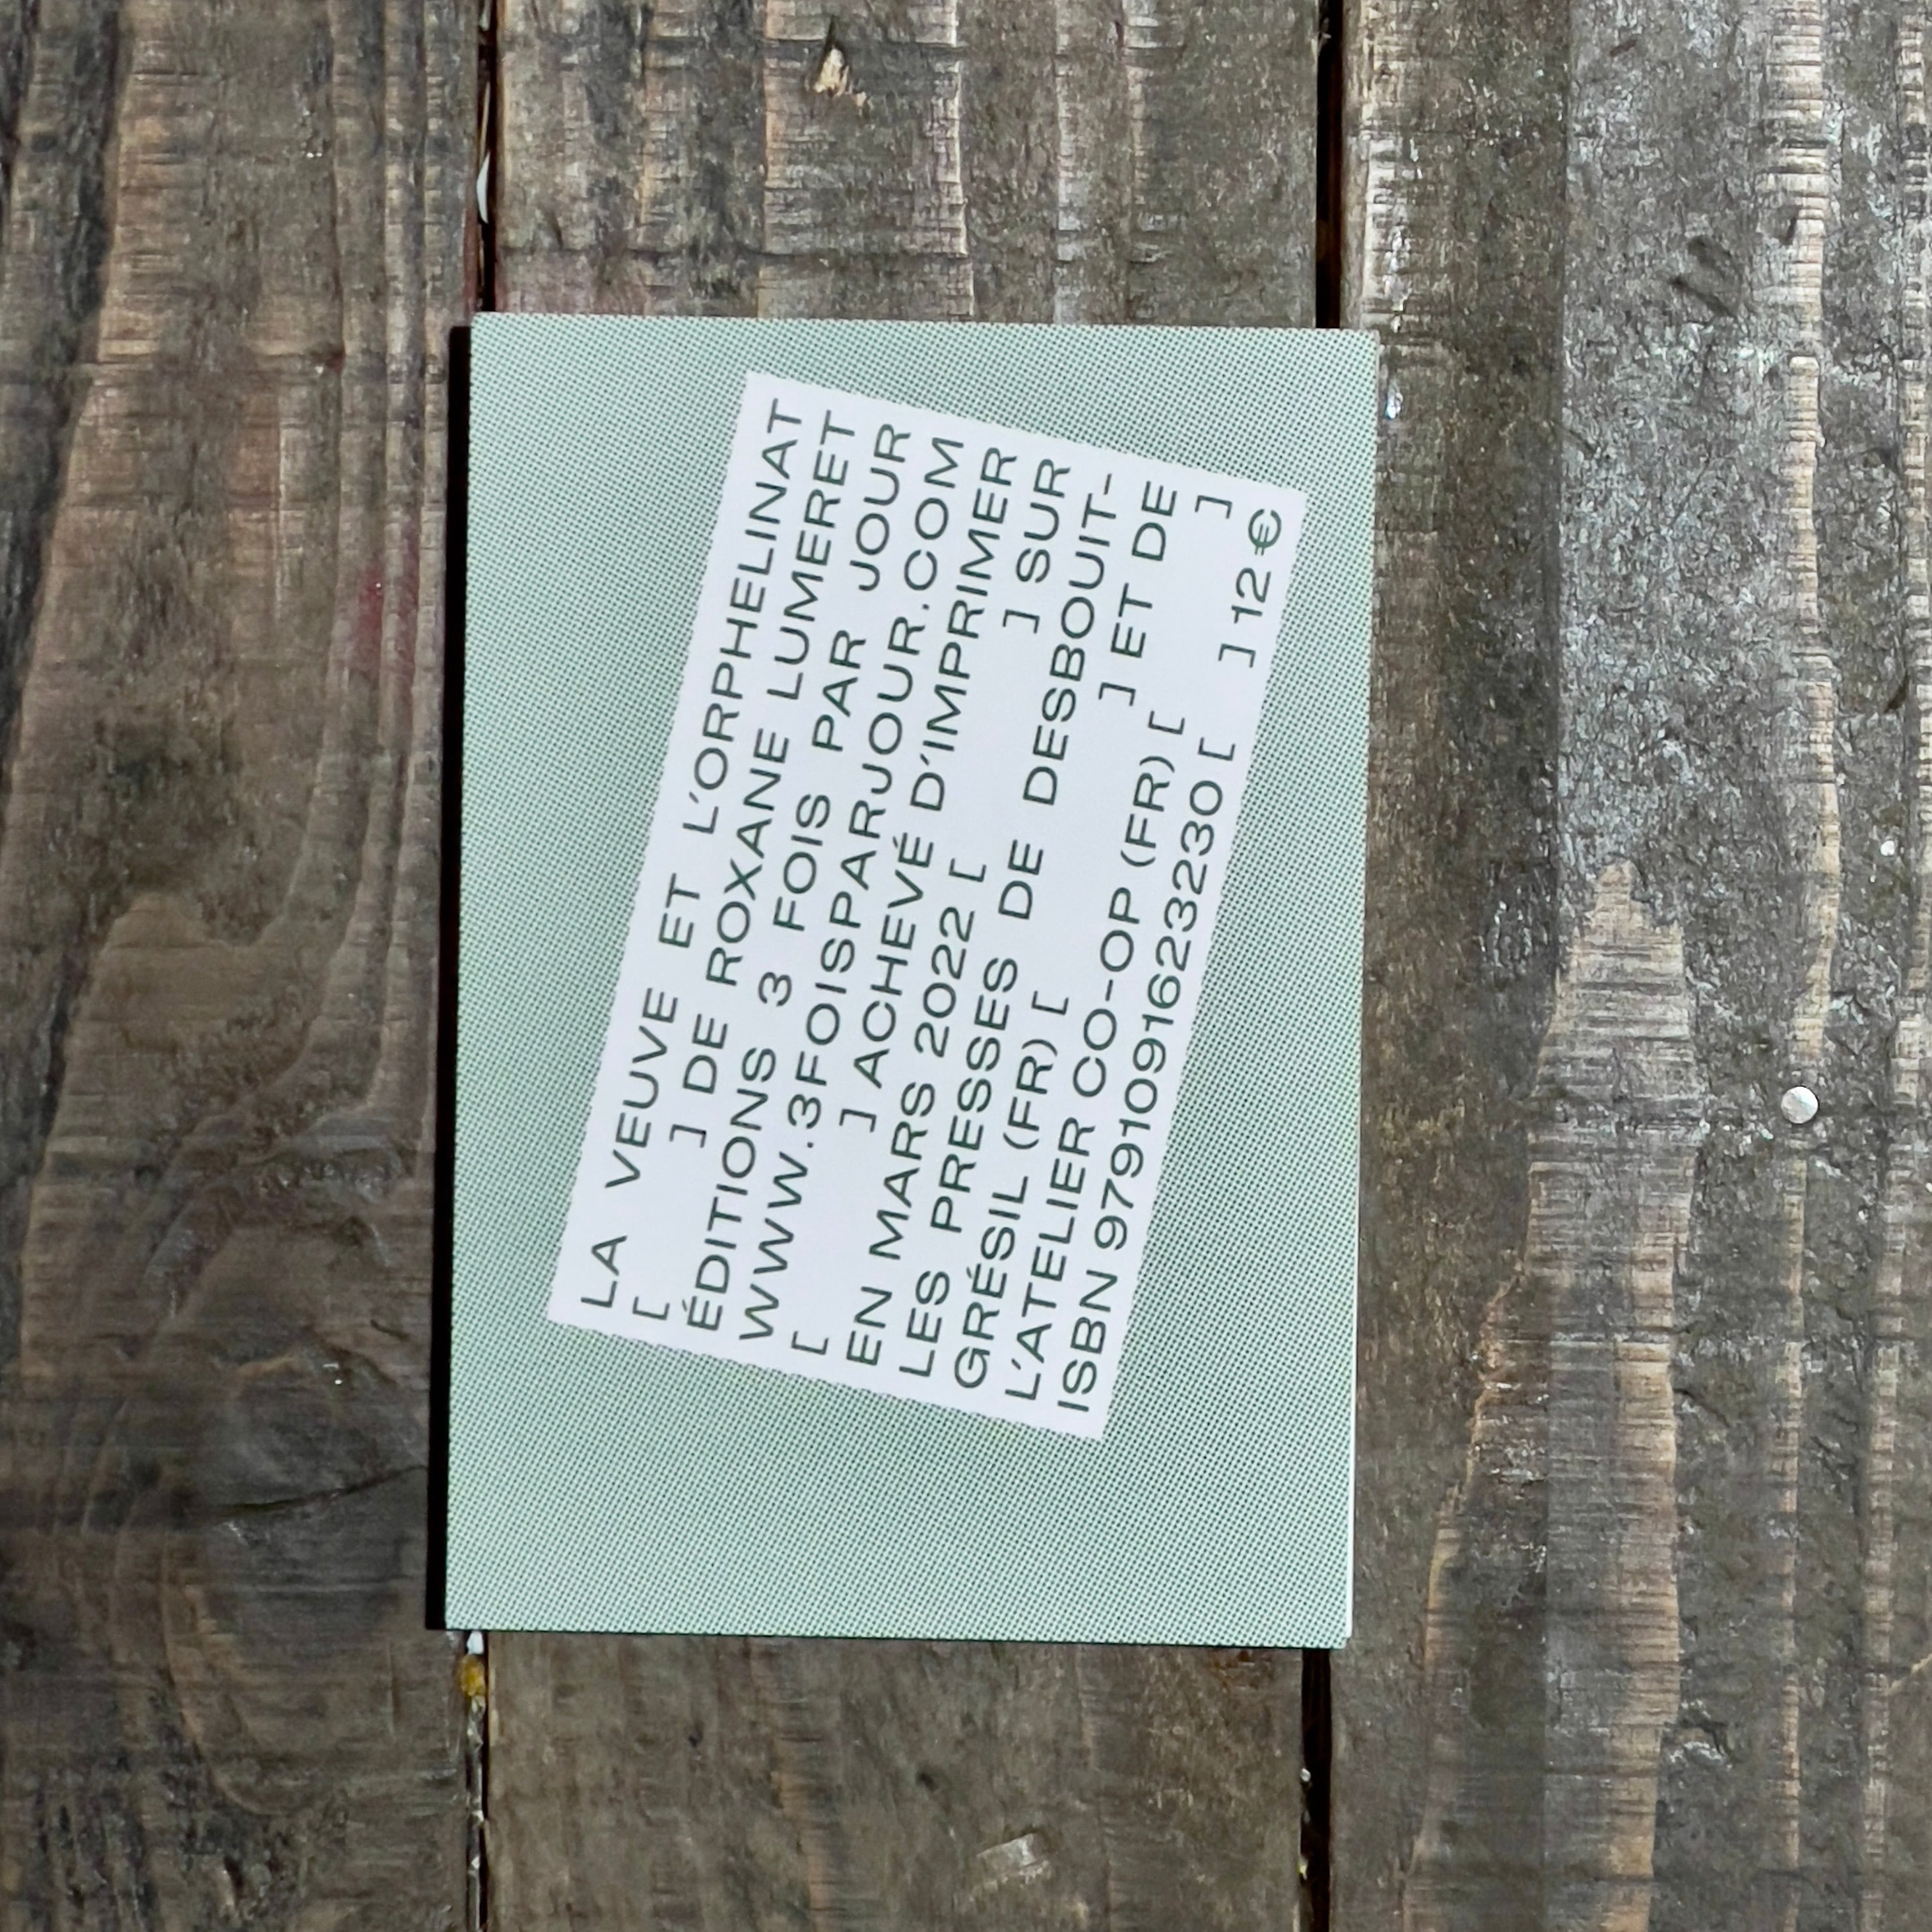 LA VEUVE ET L'ORPHELINAT
[ ] DE ROXANE LUMERET
ÉDITIONS 3 FOIS PAR JOUR
WWW.3FOISPARJOUR.COM
[ ] ACHEVÉ D'IMPRIMER
EN MARS 2022 [ ] SUR
LES PRESSES DE DESBOUIT-
GRÉSIL (FR) [ ] ET DE
L'ATELIER CO-OP (FR) [ ]
ISBN 9791091623230 [ ] 12 €